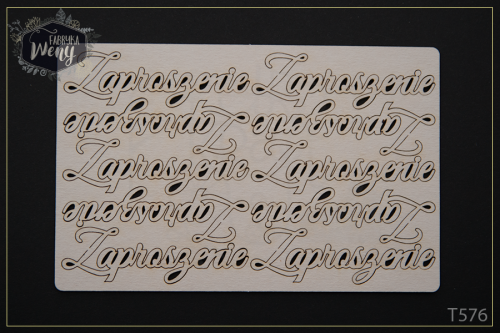 FABRYKA
Weny
Zaproszenie Zaproszenie
Zaproszenie Zaproszenie
Zaproszenie Zaproszenie
Zaproszenie Zaproszenie
Zaproszenie Zaproszenie
T576